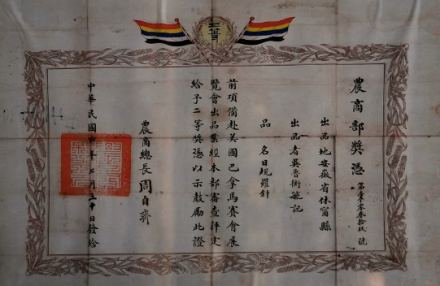 二等
農商部獎憑
第壹零叁拾玖號
出品地安徽省休甯縣
出品者吳魯衡毓記
品名日規羅針
前項備赴美國巴拿馬賽會展
覽會出品業經本部審查評定
給予二等獎憑以示鼓勵此證
農商總長周自齊
中華民國年月日發給